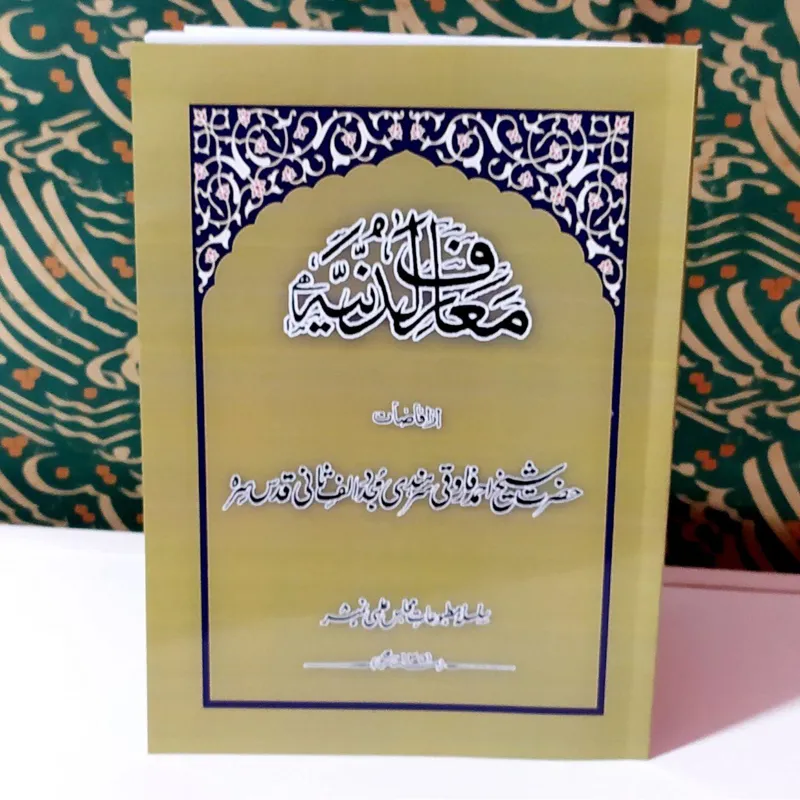 معارف لدنیہ
از افاضات
حضرت شیخ احمد فاروقی سرہندی مجدد الف ثانی قدس سرہ
سلسلہ مطبوعات مجلس علمی نمبر